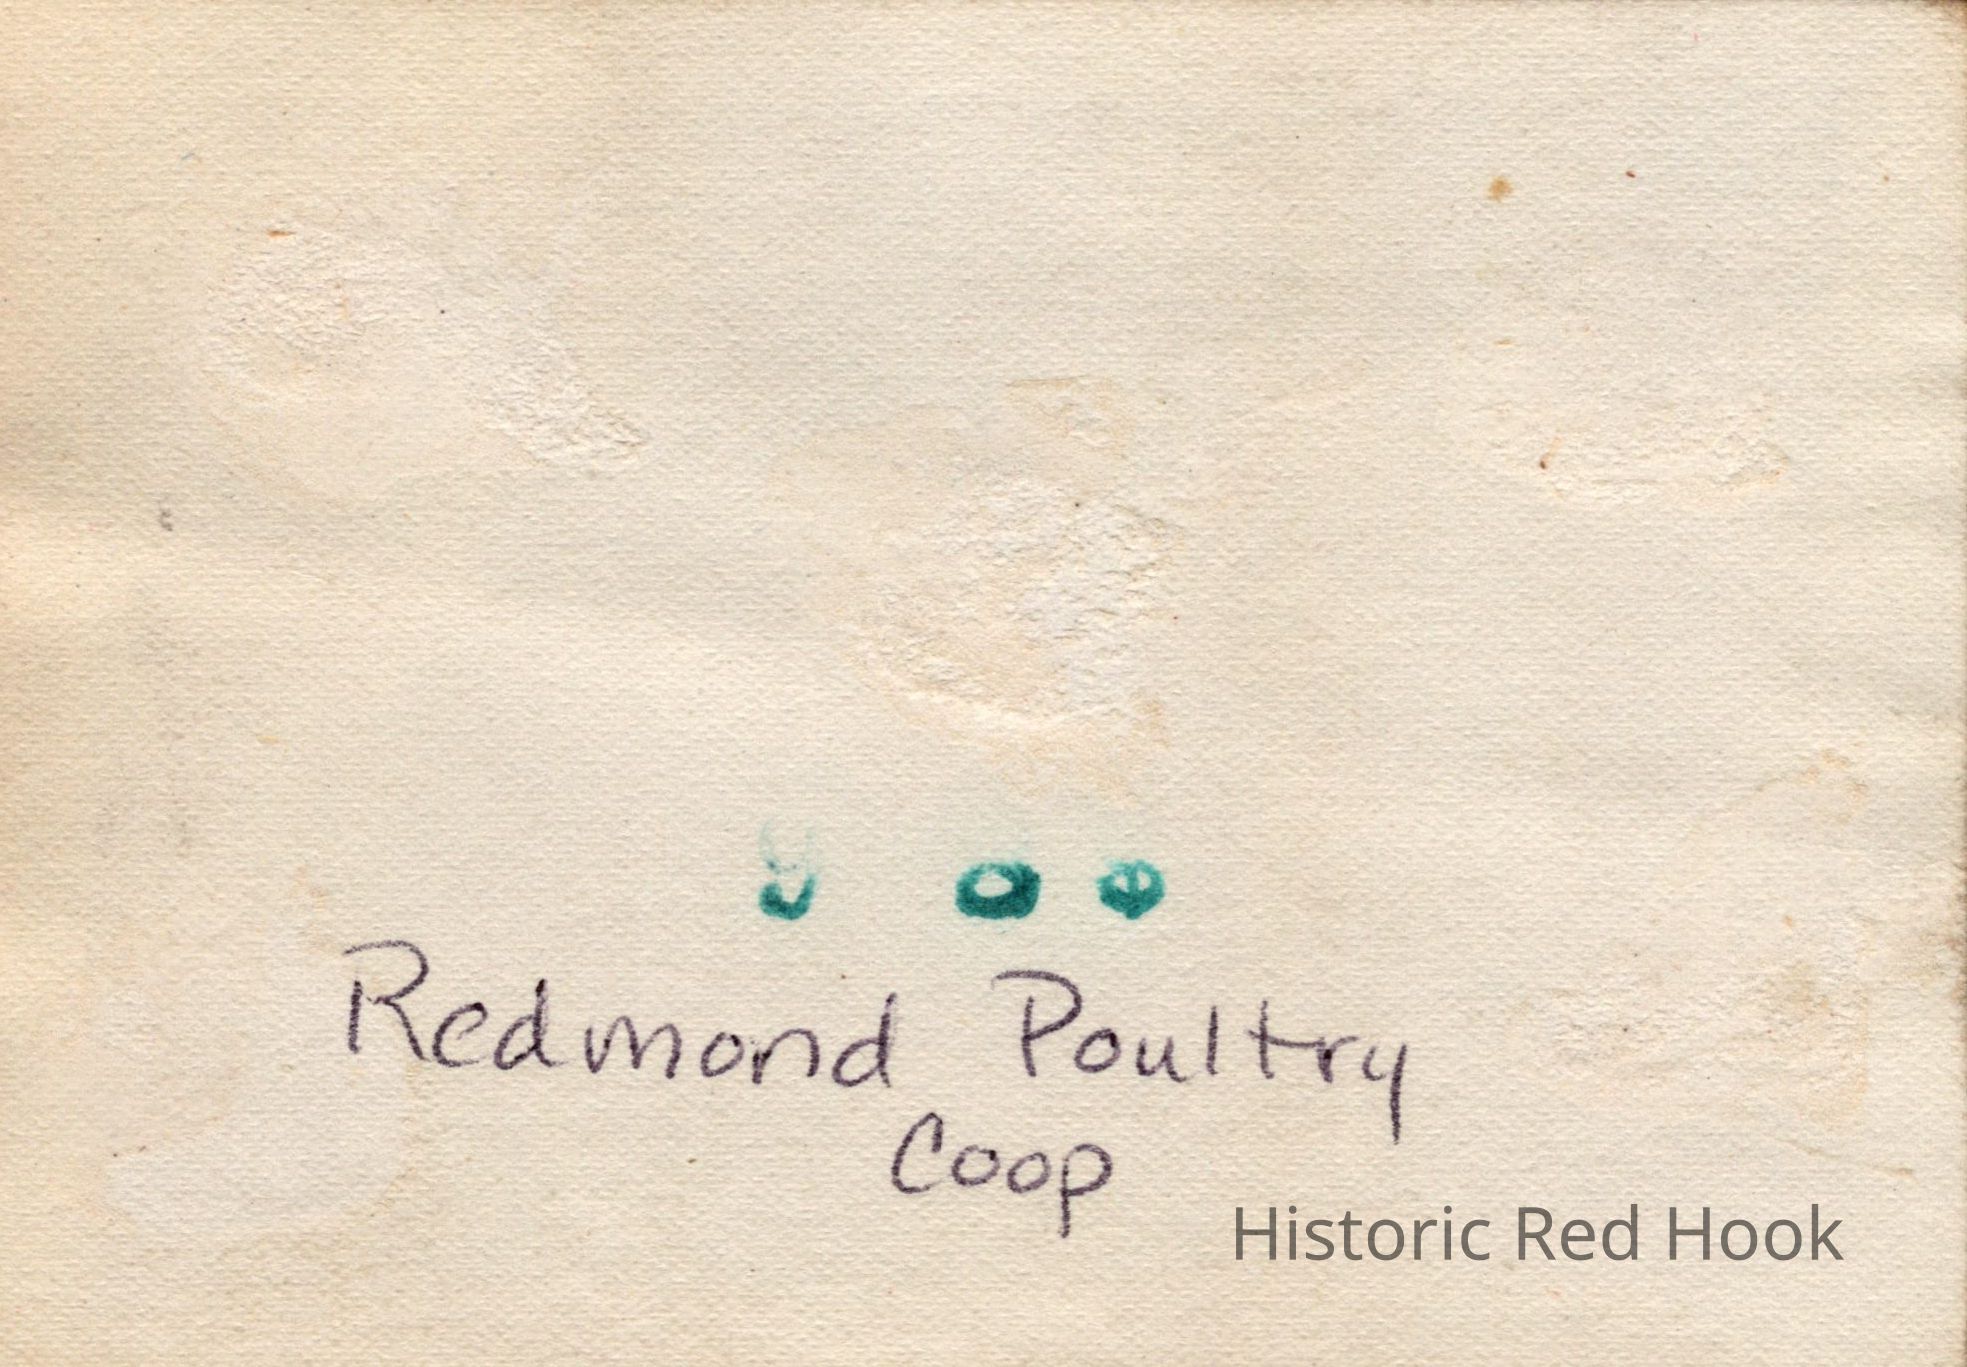 Redmond Poultry
Coop
Historic Red Hook